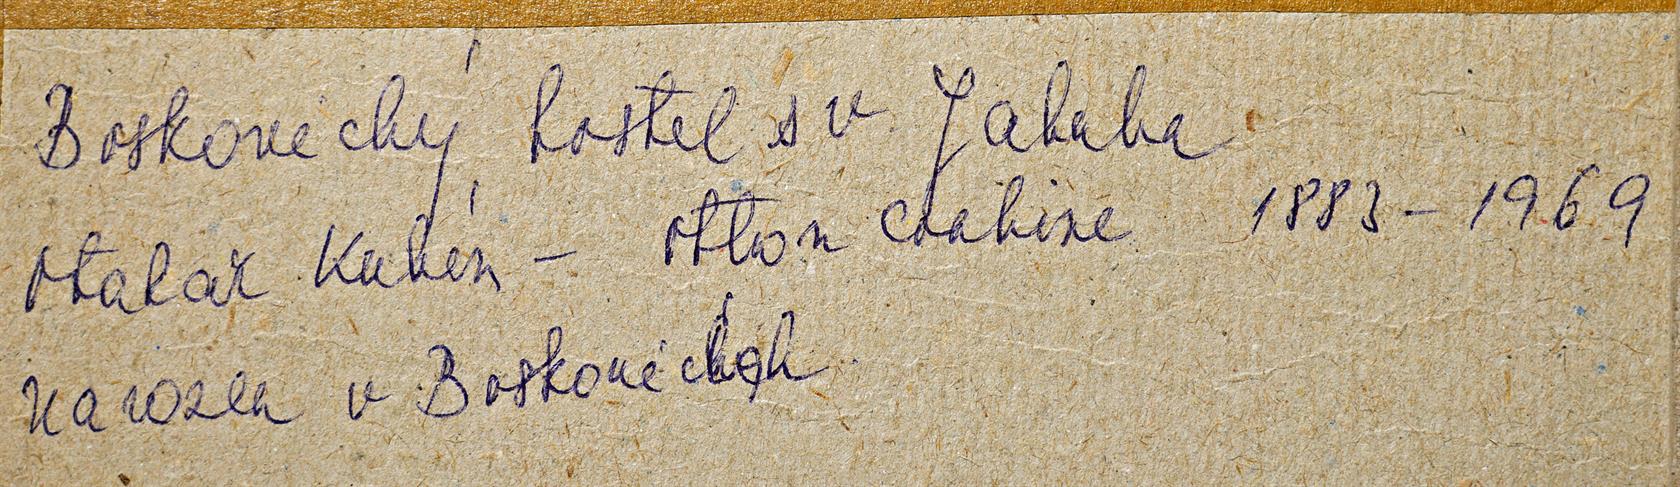 Boskovický kostel sv. Jakuba
Otakar Kubín - Otton coubine 1883 - 1969
Narozen v Boskovicích